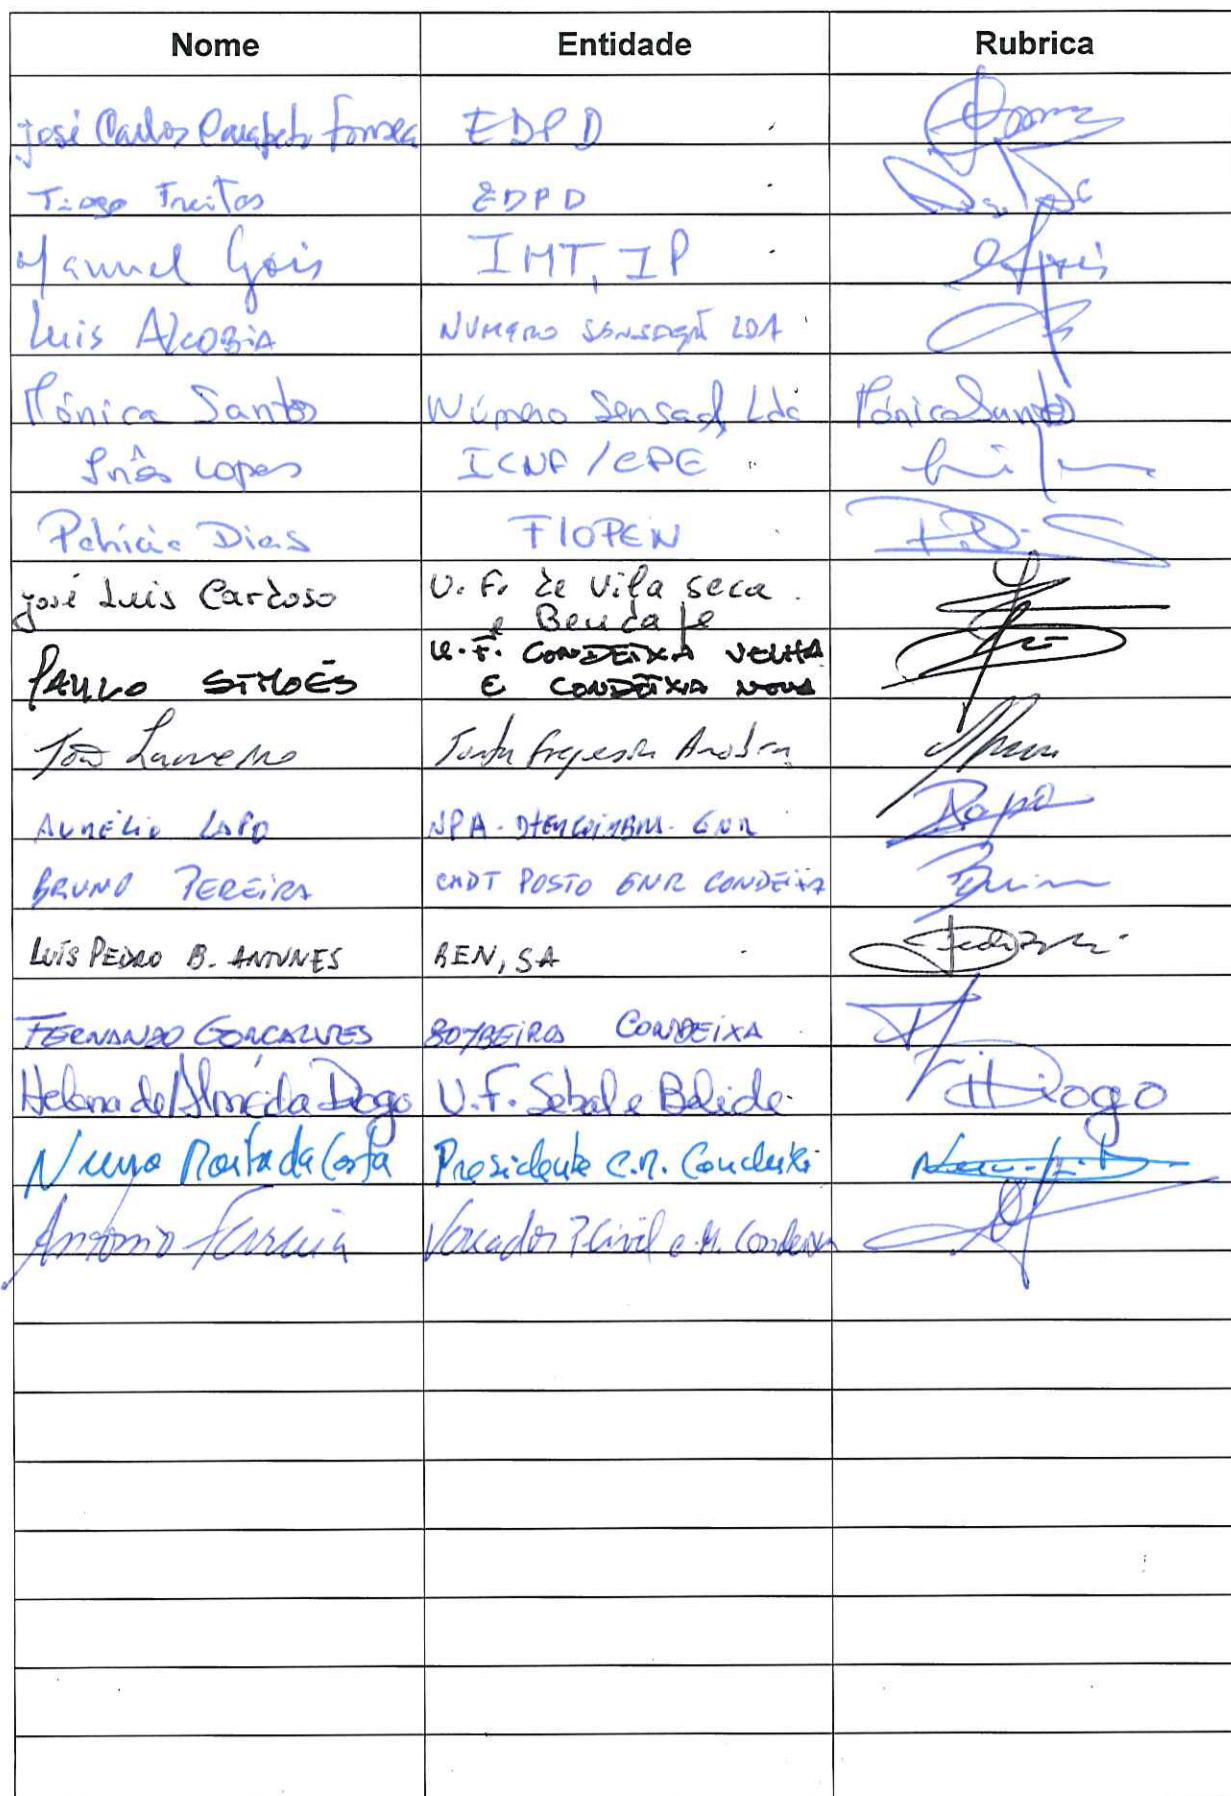 Nome Entidade Rubrica
José Carlos Fonseca EDPD
Tiago Freitas EDPD
Manuel Gois IMT, IP
Luis Alcobia NUMERO LDA
Mónica Santos Número Lda Mónica Santos
Inês Lopes ICNF /
Patrícia Dias FLOPEN
José Luis Cardoso U. F. de Vila seca
e Bendafé
PAULO SIMÕES U.F. CONDEIXA VELHA
E CONDEIXA NOVA
João Junta Freguesia
AURÉLIO LAPO NPA - GNR
BRUNO PEREIRA CMDT POSTO GNR CONDEIXA
LUÍS PEDRO B. ANTUNES REN, SA
FERNANDO GONÇALVES BOMBEIROS CONDEIXA
Helena de Almeida Diogo U.F. Sebal e Belide Diogo
Nuno Moita da Costa Presidente C.M. Condeixa
António Ferreira Vereador P Civil C.M. Condeixa